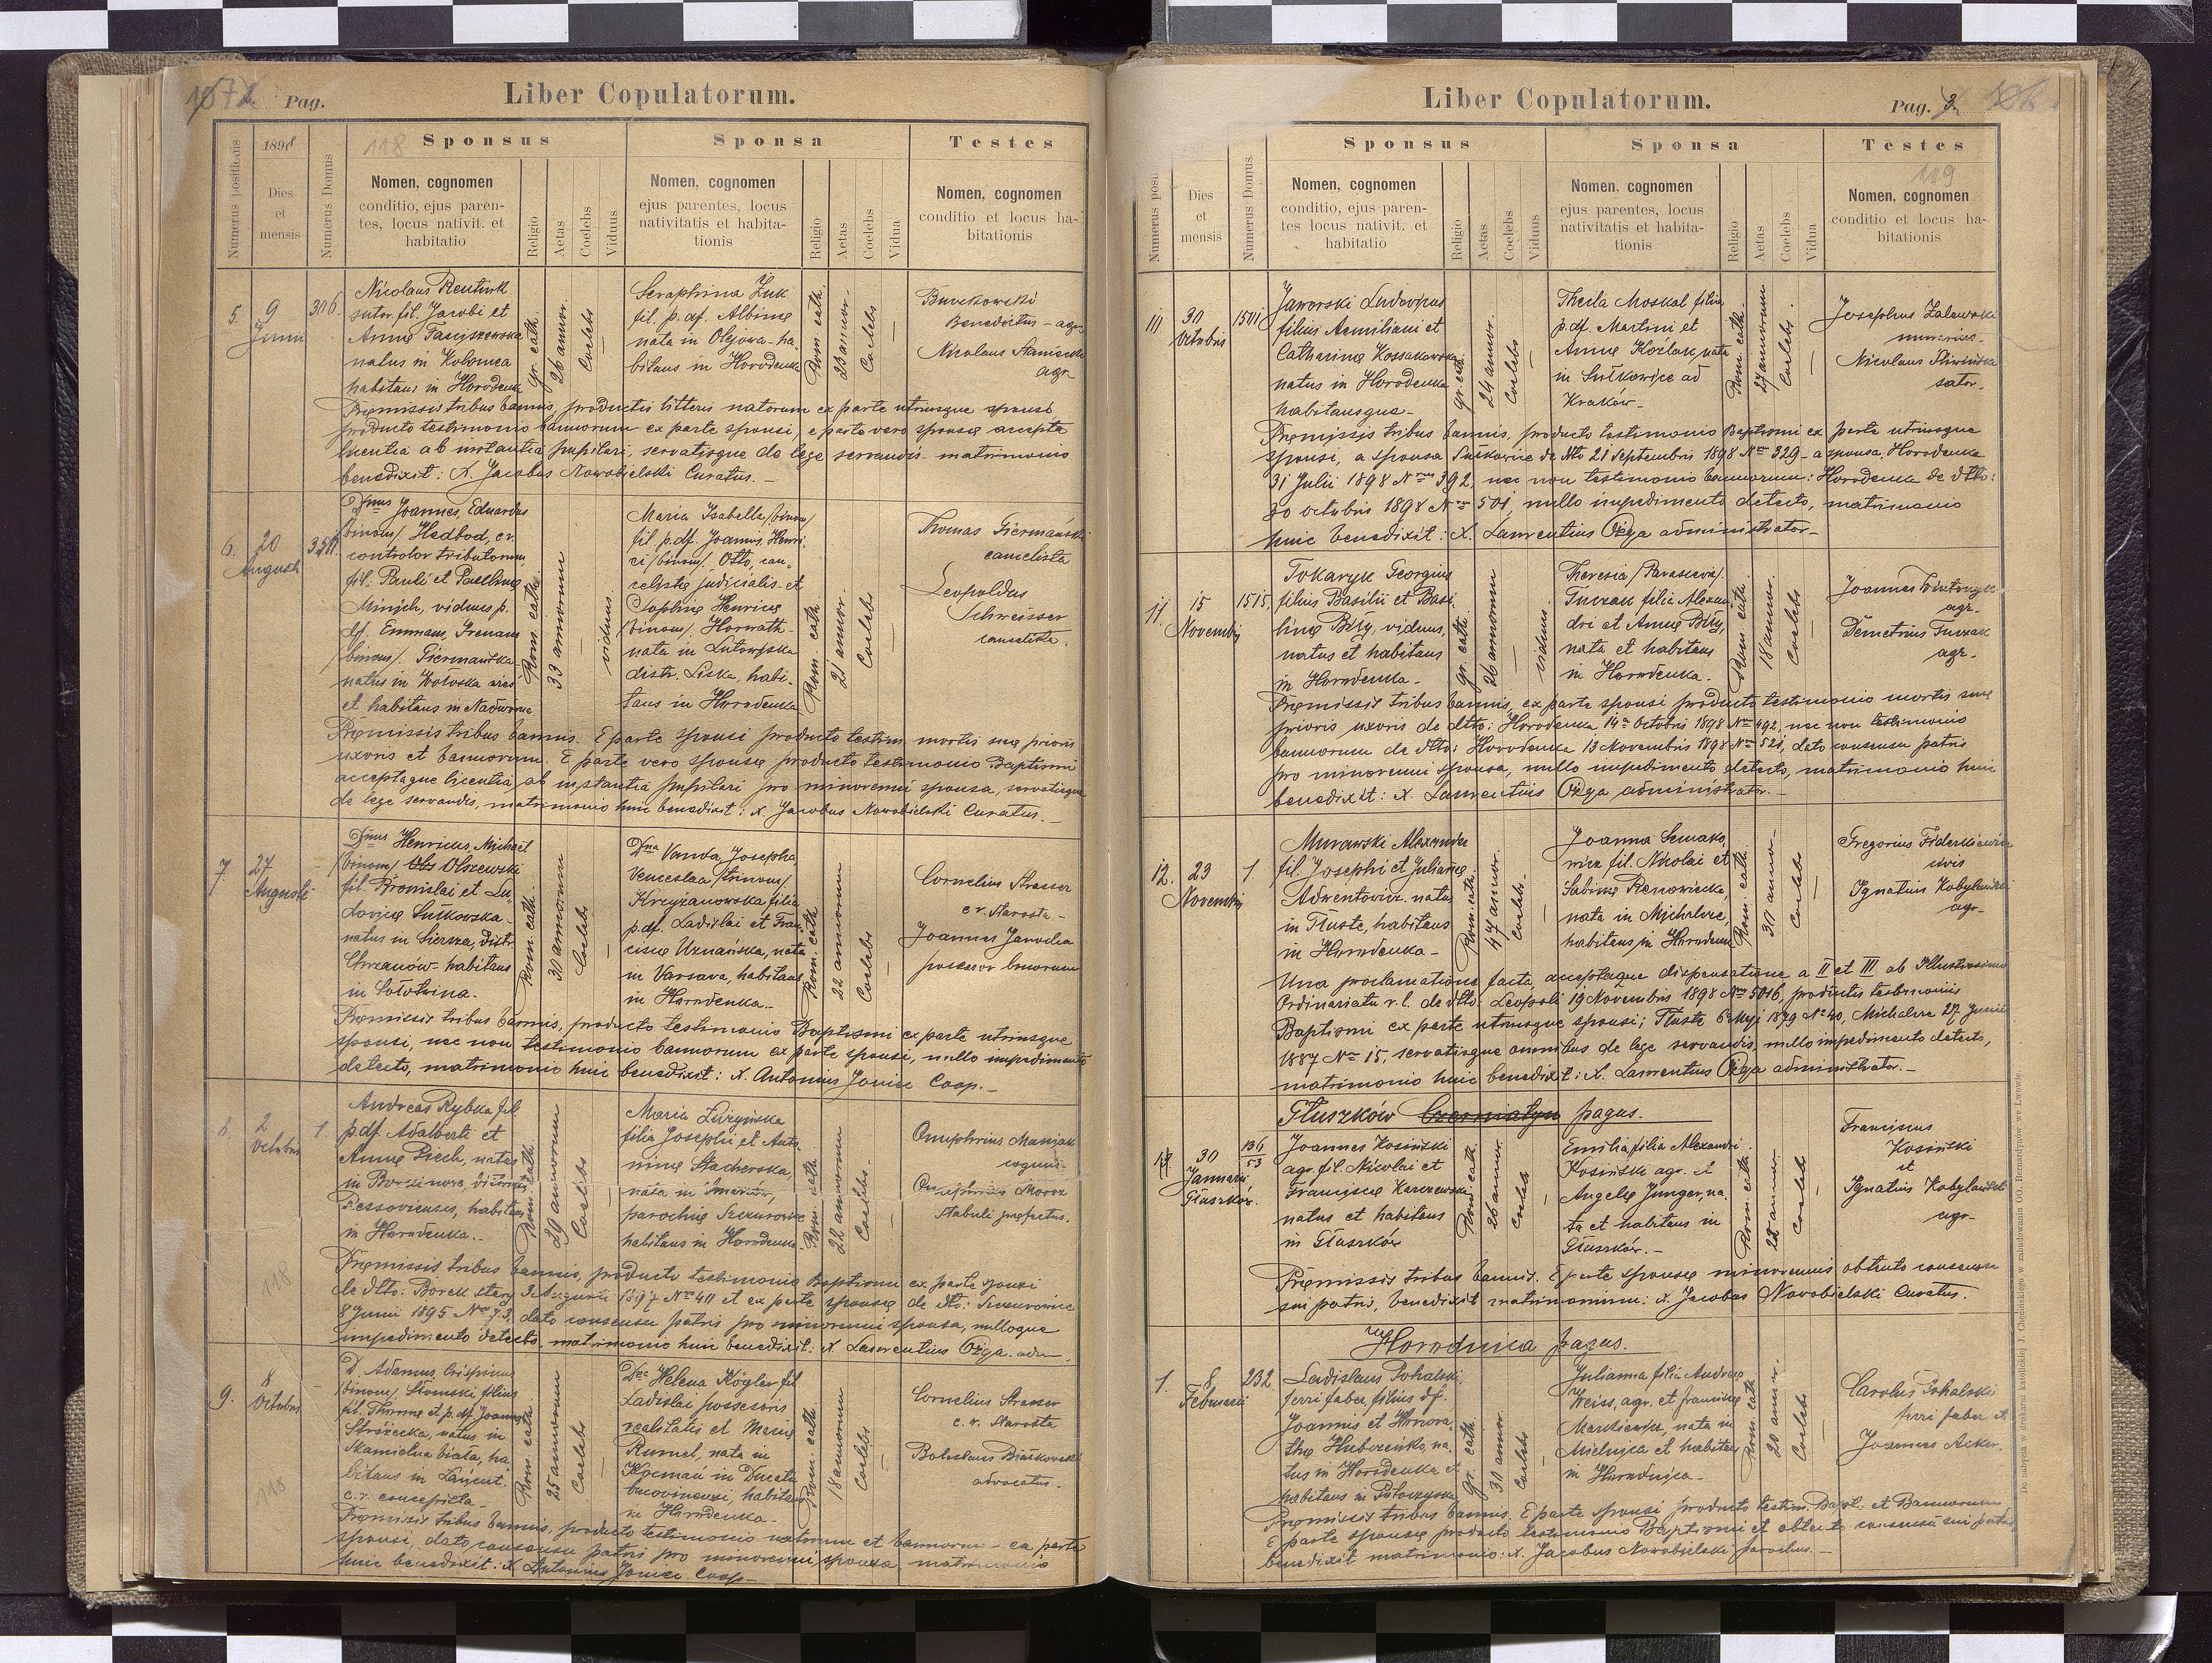 Pag.
Liber Copulatorum.
118
Numerus positionis
1898
Dies
et
mensis
Numerus Domus
Sponsus
Nomen, cognomen
conditio, ejus paren-
tes, locus nativit. et
habitatio
Religio
Aetas
Coelebs
Viduus
Sponsa
Nomen, cognomen
ejus parentes, locus
nativitatis et habita-
tionis
Religio
Aetas
Coelebs
Vidua
Testes
Nomen, cognomen
conditio et locus ha-
bitationis
5. 9 Junii 306.
Nicolaus
sutor. fil. Jacobi et
Annę
natus in Kolomea
habitans in Horodenka
gr. cath.
26 annor.
Coelebs
Seraphina Żuk
fil. p. df. Albinę
nata in Olejowa- ha-
bitans in Horodenka
Rom. cath.
23 annor.
Coelebs
Benedictus - agr.
Nicolaus
agr.
Pręmissis tribus bannis, productis litteris natorum ex parte utriusque sponsi,
producto testimonio bannorum ex parte sponsi, e parte vero sponsę accepta
licentia ab instantia pupilari, servatisque de lege servandis matrimonio
benedixit: X. Jacobus Nowobielski Curatus. -
6. 20 Augusti
Dnus Joannes, Eduardus
/binom/ Hedbod, c.r.
controlor tributorum,
fil. Pauli et Paulinę
viduus p.
df. Emmae, Irenae
/binom/.
natus in
et habitans in Nadworna
Rom. cath.
33 annorum
viduus
Maria Isabella /binom/
fil. p. df. Joannis, Henri-
ci /binom/ Otto, can-
celistę judicialis et
Sophinę Henricę
/binom/ Horwath
nata in Lutowyska
distr. Liska, habi-
tans in Horodenka
Rom. cath.
21 annor.
Coelebs
Thomas
cancelista
Leopoldus
Schweisser
cancelista.
Pręmissis tribus bannis. E parte sponsi producto testim. mortis suę prioris
uxoris et bannorum. E parte vero sponsę producto testimonio Baptismi
acceptaque licentia ab instantia pupilari pro minorenni sponsa, servatisque
de lege servandis, matrimonio huic benedixit: X. Jacobus Nowobielski Curatus. -
7 27 Augusti
Dnus Henricus, Michael
/binom/ Olszewski
fil. Bronislai et Lu-
dovicę Sutkowska -
natus in Siersza, distr.
Chrzanów habitans
in Sołotwina.
Rom. cath.
30 annorum
Coelebs
Dna Vanda, Josepha
Venceslaa /trinom/
Krzyżanowska filia
p. df. Ladislai et Fran-
ciscę Uznańska, nata
in Varsava, habitans
in Horodenka. -
Rom. cath.
22 annorum
Coelebs
Cornelius Strasser
c.r. Starosta -
Joannes
possessor bonorum
Pręmissis tribus bannis, producto testimonio Baptismi ex parte utriusque
sponsi, nec non testimonio bannorum ex parte sponsi, nullo impedimento
detecto, matrimonio huic benedixit: X. Antonius Coop. -
8. 2 Octobris 1.
Andreas Rybka fil.
p. df. Adalberti et
Annę Piech, natus
in
habitans
in Horodenka. -
Rom. cath.
29 annorum
Coelebs
Maria
filia Josephi et Anto-
ninę Stacherska,
nata in
parochię Szczurowice
habitans in Horodenka
Rom. cath.
22 annorum
Coelebs
Onuphrius
Onuphrius Moroz
stabuli pręfectus.
118
Pręmissis tribus bannis, producto testimonio Baptismi ex parte sponsi
de dtto: Borek stary 3 Augusti 1897 Nro 411 et ex parte sponsę de dto: Szczurowice
8 Junii 1895 Nro 73, dato consensu patris pro minorenni sponsa, nulloque
impedimento detecto, matrimonio huic benedixit: X. Laurentius Ożga adm.
9. 8 Octobris
118
D. Adamus, Crispinus
/binom/ Słomski filius
fil. Thomę et p. df. Joannę
Stróżecka, natus in
Skamielna biała, ha-
bitans in Łańcut.
c.r. concepista -
Rom. cath.
25 annorum
Coelebs
Dna Helena Kögler fil.
Ladislai possesoris
realitatis et Marię
Rumel, nata in
Kocmań in Ducatu
bucovinensi, habitans
in Horodenka. -
Rom. cath.
18 annorum
Coelebs
Cornelius Strasser
c.r. Starosta
Boleslaus
advocatus. -
Pręmissis tribus bannis, producto testimonio natorum et bannorum - ex parte
sponsi, dato consensu patris pro minorenni sponsa matrimonio
huic benedixit: X. Antonius Coop -
Liber Copulatorum.
Pag. 3.
119
Dies
et
mensis
Numerus Domus
Sponsus
Nomen, cognomen
conditio, ejus paren-
tes locus nativit. et
habitatio
Religio
Aetas
Coelebs
Viduus
Sponsa
Nomen, cognomen
ejus parentes, locus
nativitatis et habita-
tionis
Religio
Aetas
Coelebs
Vidua
Testes
Nomen, cognomen
conditio et locus ha-
bitationis
10 30 Octobris
Jaworski Ludovicus
filius Aemiliani et
Catharinę Kossakowska
natus in Horodenka
habitansque -
gr. cath.
24 annor.
Coelebs
Thecla Moskal filia
p. df. Martini et
Annę Koźlak nata
in Sułkowice ad
Kraków -
Rom. cath.
27 annorum
Coelebs
Josephus Zalewski
Nicolaus
Pręmissis tribus bannis, producto testimonio Baptismi ex parte utriusque
sponsi, a sponsa Sułkowice de dtto 21 Septembris 1898 Nro 329 - a sponso, Horodenka
31 Julii 1898 Nro 392, nec non testimonio bannorum: Horodenka de dtto:
30 octobris 1898 Nro 501, nullo impedimento detecto, matrimonio
huic benedixit: X. Laurentius Ożga administrator -
11. 15 Novembris 1515.
Tokaryk Georgius
filius Basilii et Basi-
linę Biły, viduus,
natus et habitans
in Horodenka -
gr. cath.
26 annorum
viduus
Theresia /Parascevia/
filia Alexan-
dri et Annę Biły,
nata et habitans
in Horodenka.
Rom. cath.
18 annor.
Coelebs
Joannes
agr.
Demetrius
agr.
Pręmissis tribus bannis, ex parte sponsi producto testimonio mortis suę
prioris uxoris de dtto: Horodenka 14a Octobris 1898 Nro 492, nec non testimonio
bannorum de dtto: Horodenka 13 Novembris 1898 Nro 521, dato consensu patris
pro minorenni sponsa, nullo impedimento detecto, matrimonio huic
benedixit: X. Laurentius Ożga administrator. -
12. 23 Novembris 1.
Murawski Alexander
fil. Josephi et Julianę
Adwentowicz natus
in Tłuste, habitans
in Horodenka -
Rom. cath.
47 annor.
Coelebs
Joanna Semako-
wicz fil. Nicolai et
Sabinę Renowiecka,
nata in Michalcze,
habitans in Horodenka
Rom. cath.
30 anno-
Coelebs
Gregorius
civis
Ignatius Kobylański
agr.
Una proclamatione facta, acceptaque dispensatione a II et III ab Illustrissimo
Ordinariatu r.l. de dtto: Leopoli 19 Novembris 1898 Nro 5016, productis testimoniis
Baptismi ex parte utriusque sponsi; Tłuste 6 Maji 1879 No 40, Michalcze 27 Junii
1887 Nro 15, servatisque omnibus de lege servandis, nullo impedimento detecto,
matrimonio huic benedixit: X. Laurentius Ożga administrator. -
Głuszków Czerniatyn pagus.
30 Januarii Głuszków 136/53
Joannes Kosiński
agr. fil. Nicolai et
Franciscę Karczewska
natus et habitans
in Głuszków
Rom. cath.
26 annor.
Coelebs
Emilia, filia Alexandri
Kosiński agr. et
Angelę Junger, na-
ta et habitans in
Głuszków. -
Rom. cath.
annor.
Coelebs
Franciscus
Kosiński
et
Ignatius Kobylański
agr.
Pręmissis tribus bannis. E parte sponsę minorennis obtento consensu
sui patris, benedixit matrimonium: X. Jacobus Nowobielski Curatus.
Horodnica pagus.
1. 8 Februarii 232
Ladislaus Pohalski,
ferri faber, filius df.
Joannis et Honora-
thę Hubczenko, na-
tus in Horodenka et
habitans in
gr. cath.
30 annor.
Coelebs
Julianna filia Andreę
Weiss, agr. et Franciscę
Markiewicz, nata in
Mielnica et habitans
in Horodnica -
Rom. cath.
20 annor.
Coelebs
Carolus Pohalski
ferri faber et
Joannes Acker.
Pręmissis tribus bannis. E parte sponsi producto testim. Bapt. et Bannorum
E parte sponsę producto testimonio Baptismi et obtento consensu sui patris
benedixit matrimonio: X. Jacobus Nowobielski parochus. -
Do nabycia w drukarni katolickiej J. Chęcińskiego w zabudowaniu OO. Bernardynów we Lwowie.